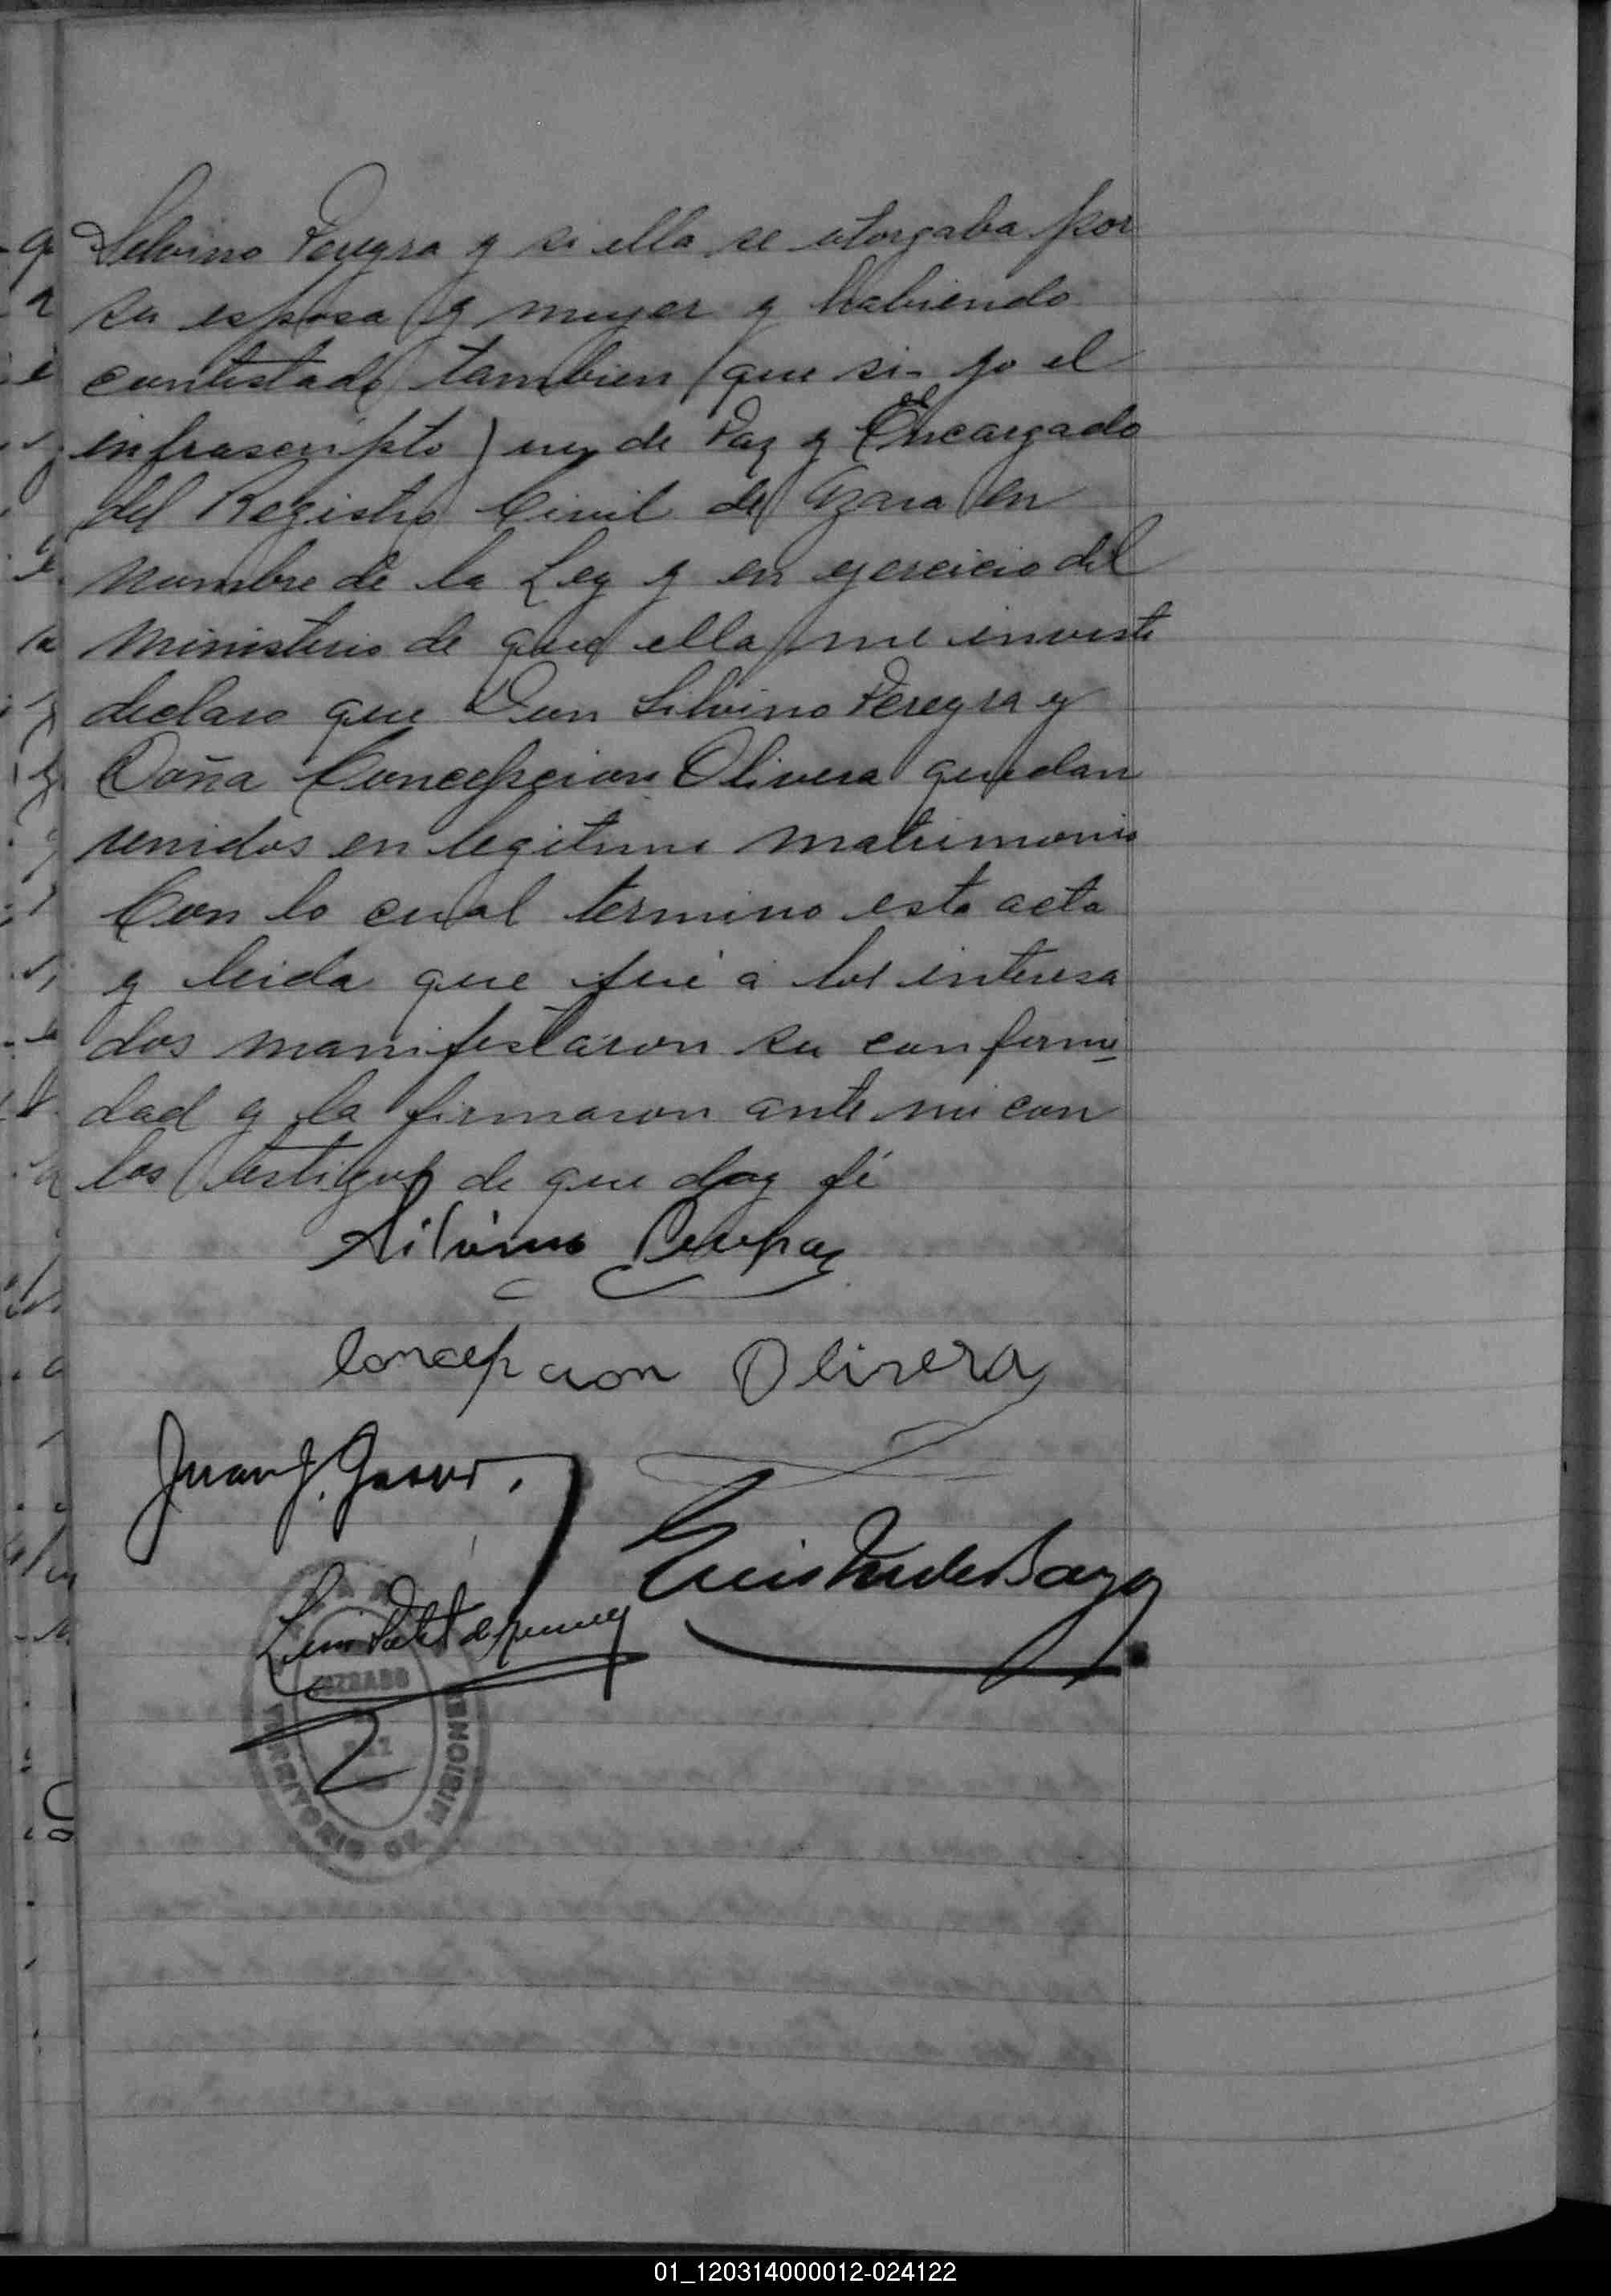 Silvino Pereyra y si ella se otorgaba por
su esposa y muger y habiendo
contestado tambien que si- yo el
infrascripto Juez de Paz y Encargado
del Registro Civil de Azara en
nombre de la Ley y en ejercicio del
ministerio de que ella me inviste
declaro que Don Silvino Pereyra y
Doña Concepcion Olivera quedan
unidos en legitimo matrimonio
Con lo cual termino esta acta
y leida que fué á los interesa
dos manifestaron su conformi
dad y la firmaron ante mi con
los testigos de que doy fé
Silvino Pereyra
Concepcion Olivera
Juan J.
Luis
Luis
JUZGADO
TERRITORIO DE MISIONES
01_120314000012-024122